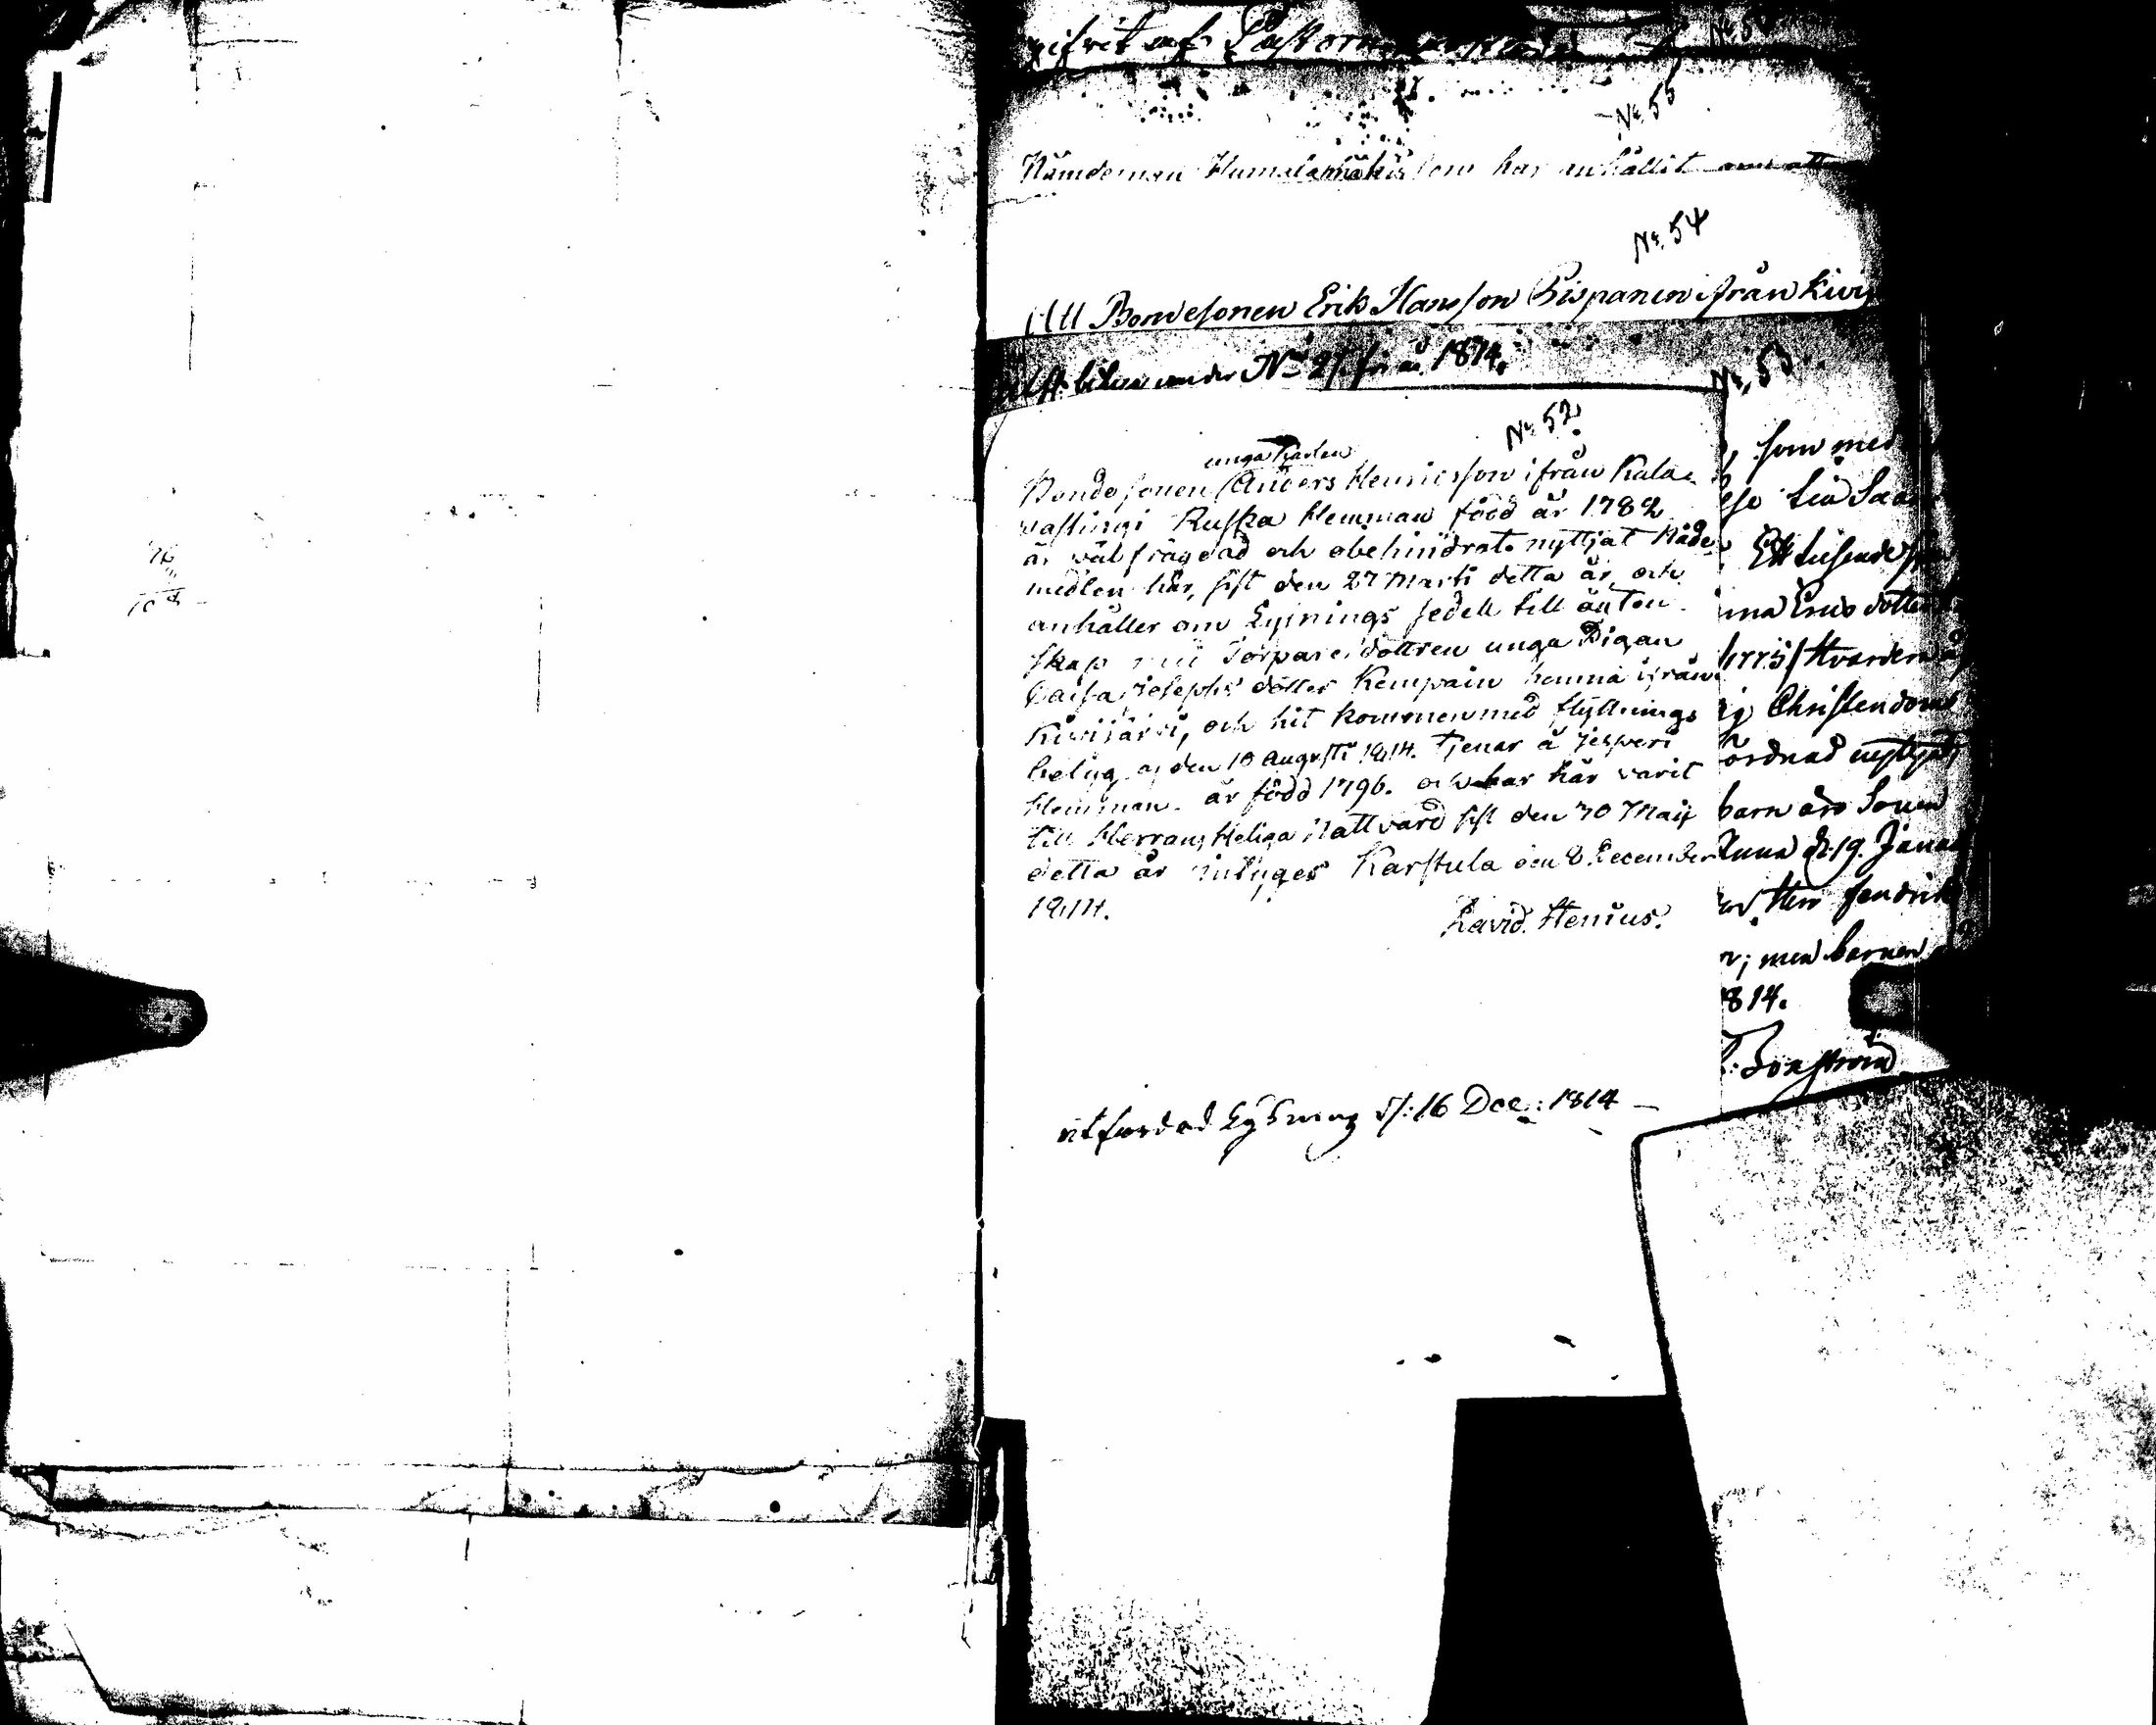 gifvit af Pastorn
No. 55
Nämdeman Humalamäki som har anhållit om att
No. 54
Att Bondesonen Erik Hansson Piispanen ifrån Kivi
under No 21 för år 1814.
No. 53
No. 52
unga Karlen
Bondesonen Anders Henricsson ifrån Kala-
vastingi Ruska Hemman född år 1782
är välfrägdad och obehindrat nyttjat Nåde
medlen här, sist den 27 Marti detta år, och
anhåller om Lysnings sedell till äkten-
skap med Torpare dottren unga Pigan
Caisa Josephs dotter Kempain hemma ifrån
Kivijärvi, och hit kommen med flyttnings
betyg af den 10 Augusti 1814. Tjenar å Jesperi
Hemman. är född 1796. och har här varit
till Herrans Heliga Nattvard sist den 30 Maij
detta år intygar Karstula den 8 December
1814.
David Stenius.
utfärdad Lysning d: 16 Dec: 1814
, som med
Ett tusende
inna Ericsdotter
1775
ig Christendoms
barn äro Sonen
d. 19. Janua
r; men barnen
814.